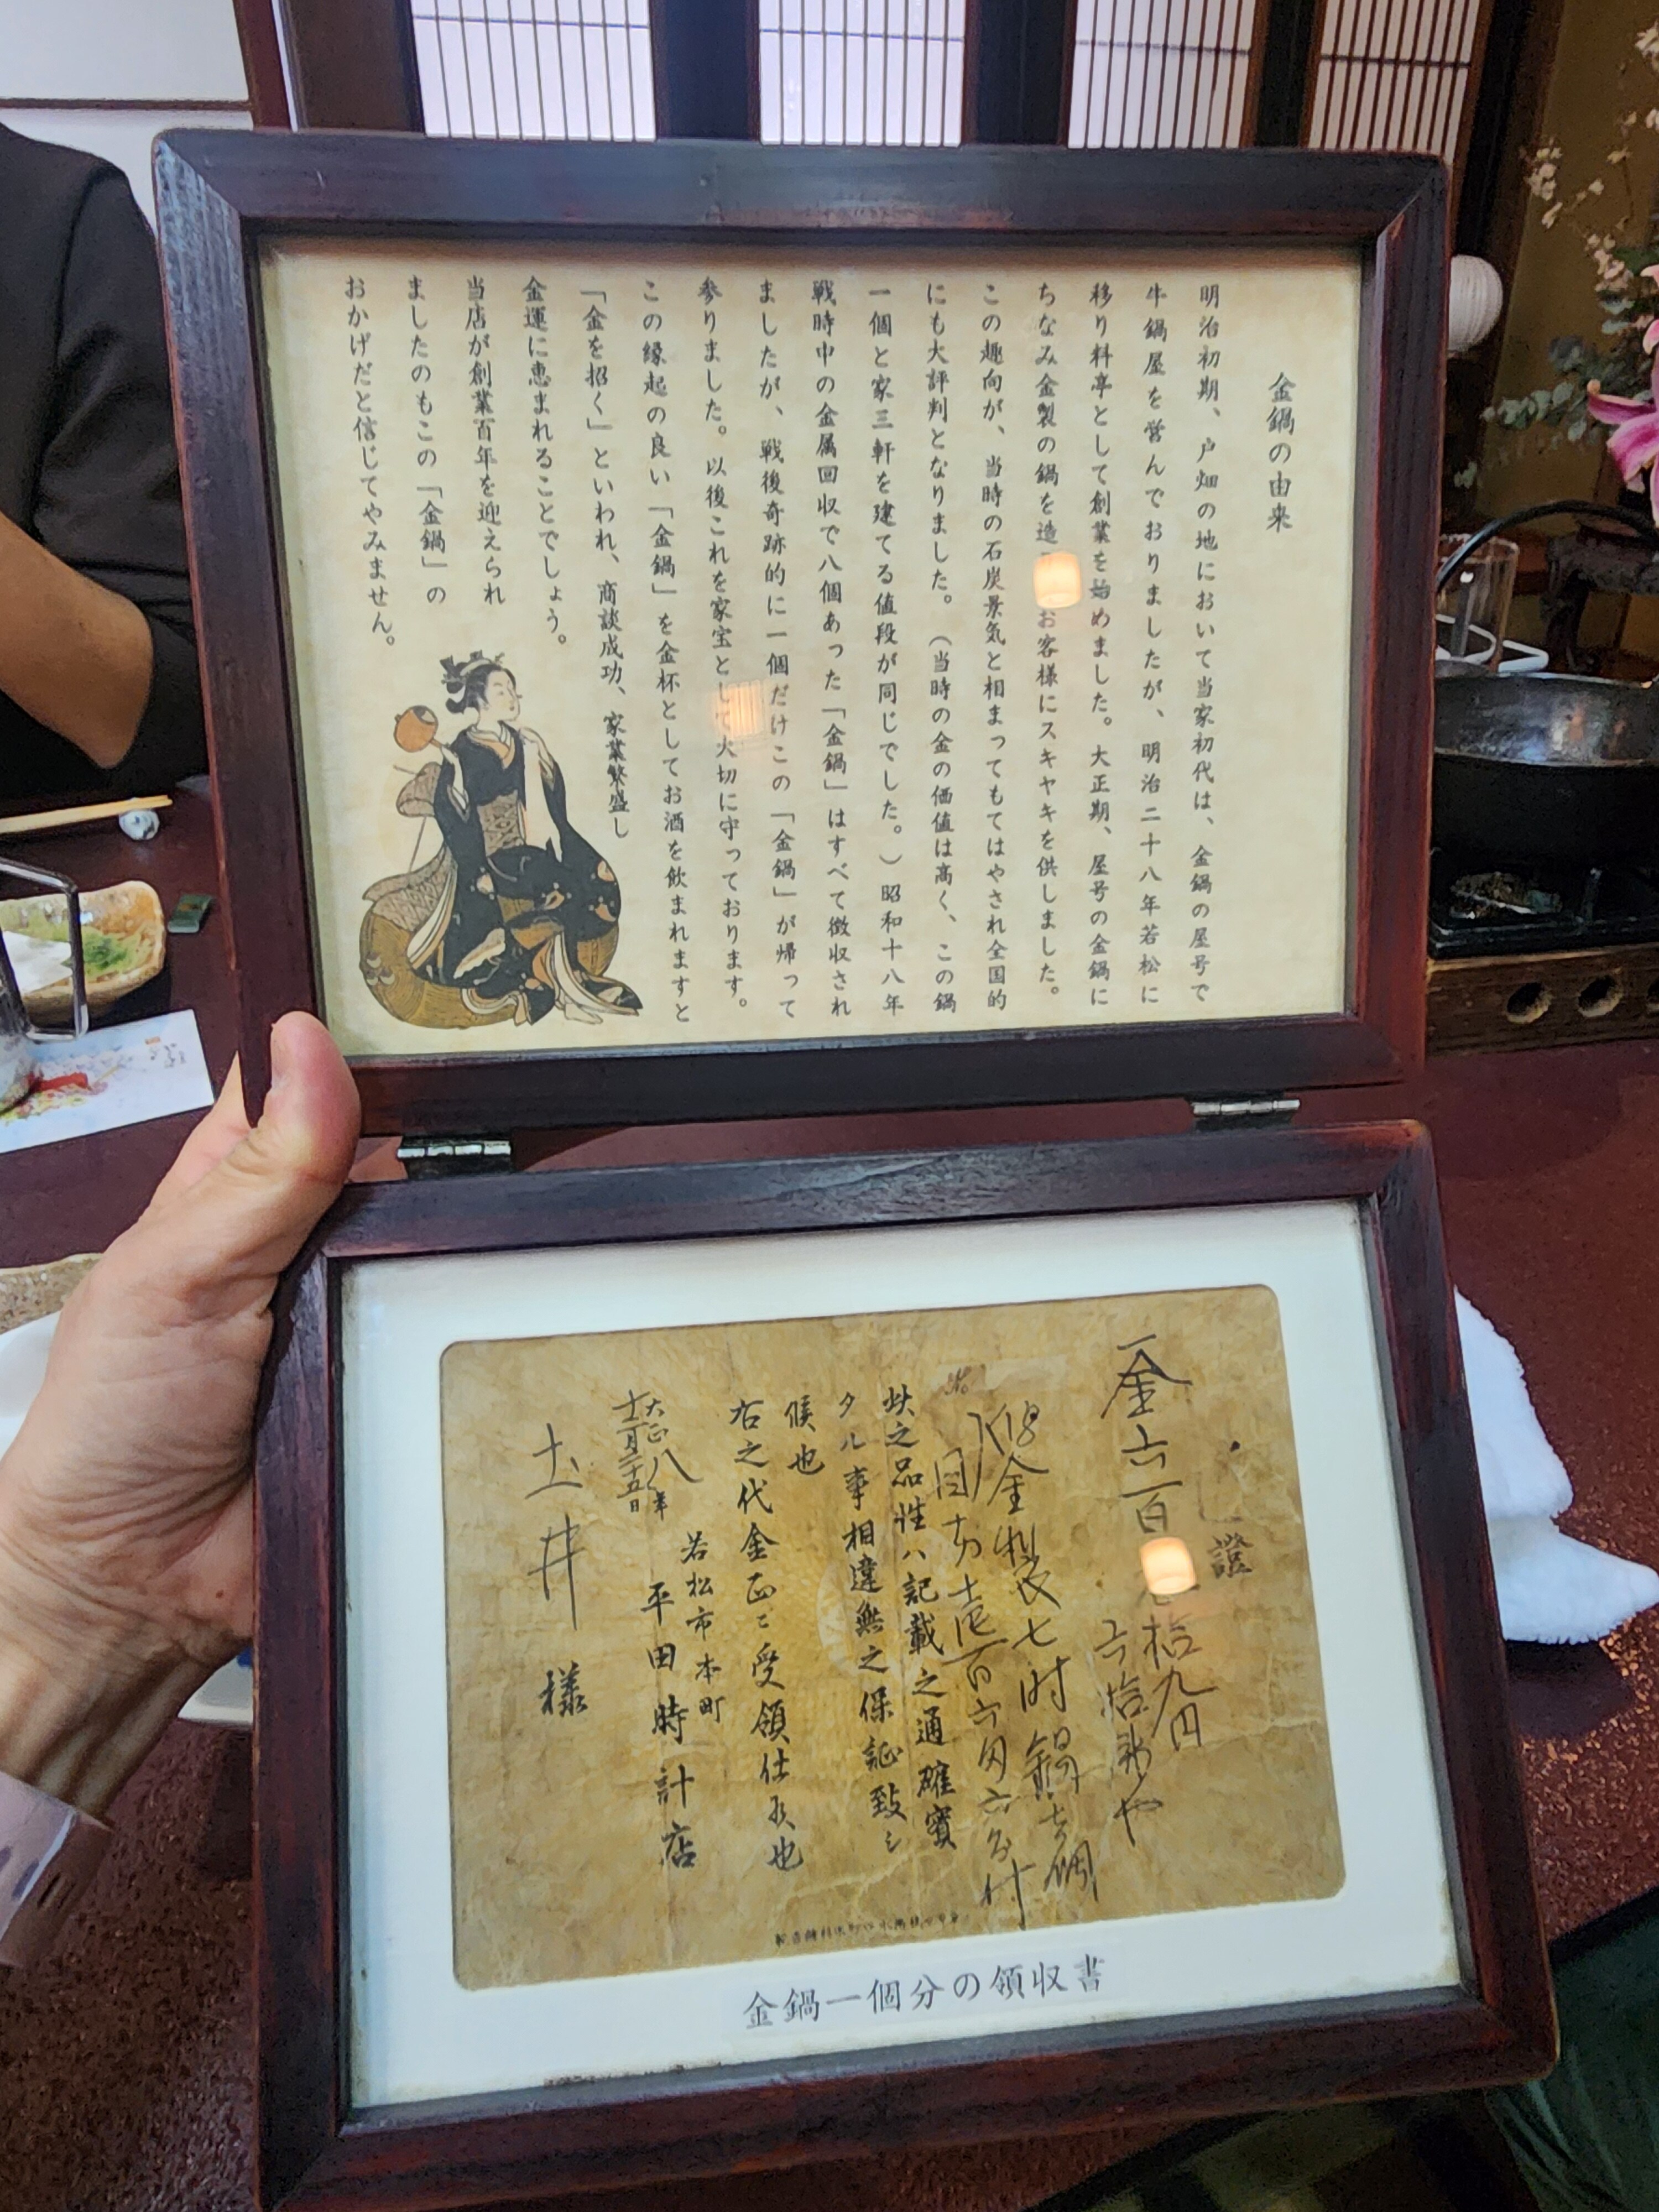 金鍋の由来
明治初期、戸畑の地において当家初代は、金鍋の屋号で
牛鍋屋を営んでおりましたが、明治二十八年若松に
移り料亭として創業を始めました。大正期、屋号の金鍋に
ちなみ金製の鍋を造 お客様にスキヤキを供しました。
この趣向が、当時の石炭景気と相まってもてはやされ全国的
にも大評判となりました。（当時の金の価値は高く、この鍋
一個と家三軒を建てる値段が同じでした。）昭和十八年
戦時中の金属回収で八個あった「金鍋」はすべて徴収され
ましたが、戦後奇跡的に一個だけこの「金鍋」が帰って
参りました。以後これを家宝として大切に守っております。
この縁起の良い「金鍋」を金杯としてお酒を飲まれますと
「金を招く」といわれ、商談成功、家業繁盛し
金運に恵まれることでしょう。
当店が創業百年を迎えられ
ましたのもこの「金鍋」の
おかげだと信じてやみません。
證
一金六百 拾九円
六拾
K18金製七吋鍋壱個
目方壱百六匁六分付
此之品性ハ記載之通確實
タル事相違無之保証致シ
候也
右之代金正ニ受領仕候也
大正八年
十二月二十五日
若松市本町
平田時計店
土井様
金鍋一個分の領収書